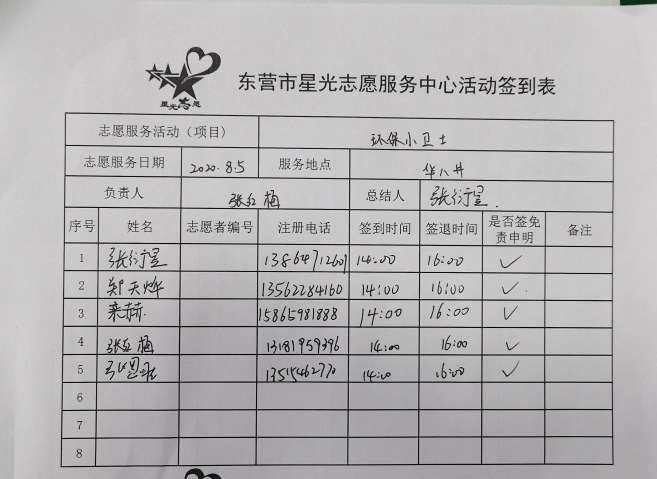 星光志愿
东营市星光志愿服务中心活动签到表
志愿服务活动（项目） 环保小卫士
志愿服务日期 2020.8.5 服务地点 华八井
负责人 张红梅 总结人 张衍星.
序号 姓名 志愿者编号 注册电话 签到时间 签退时间 是否签免责申明 备注
1 张衍星 13864712601 14:00 16:00 ✓
2 郑天烨 13562284160 14:00 16:00 ✓
3 来赫 15865981888 14:00 16:00 ✓
4 张红梅 13181959396 14:00 16:00 ✓
5 13515462770 14:00 16:00 ✓
6
7
8